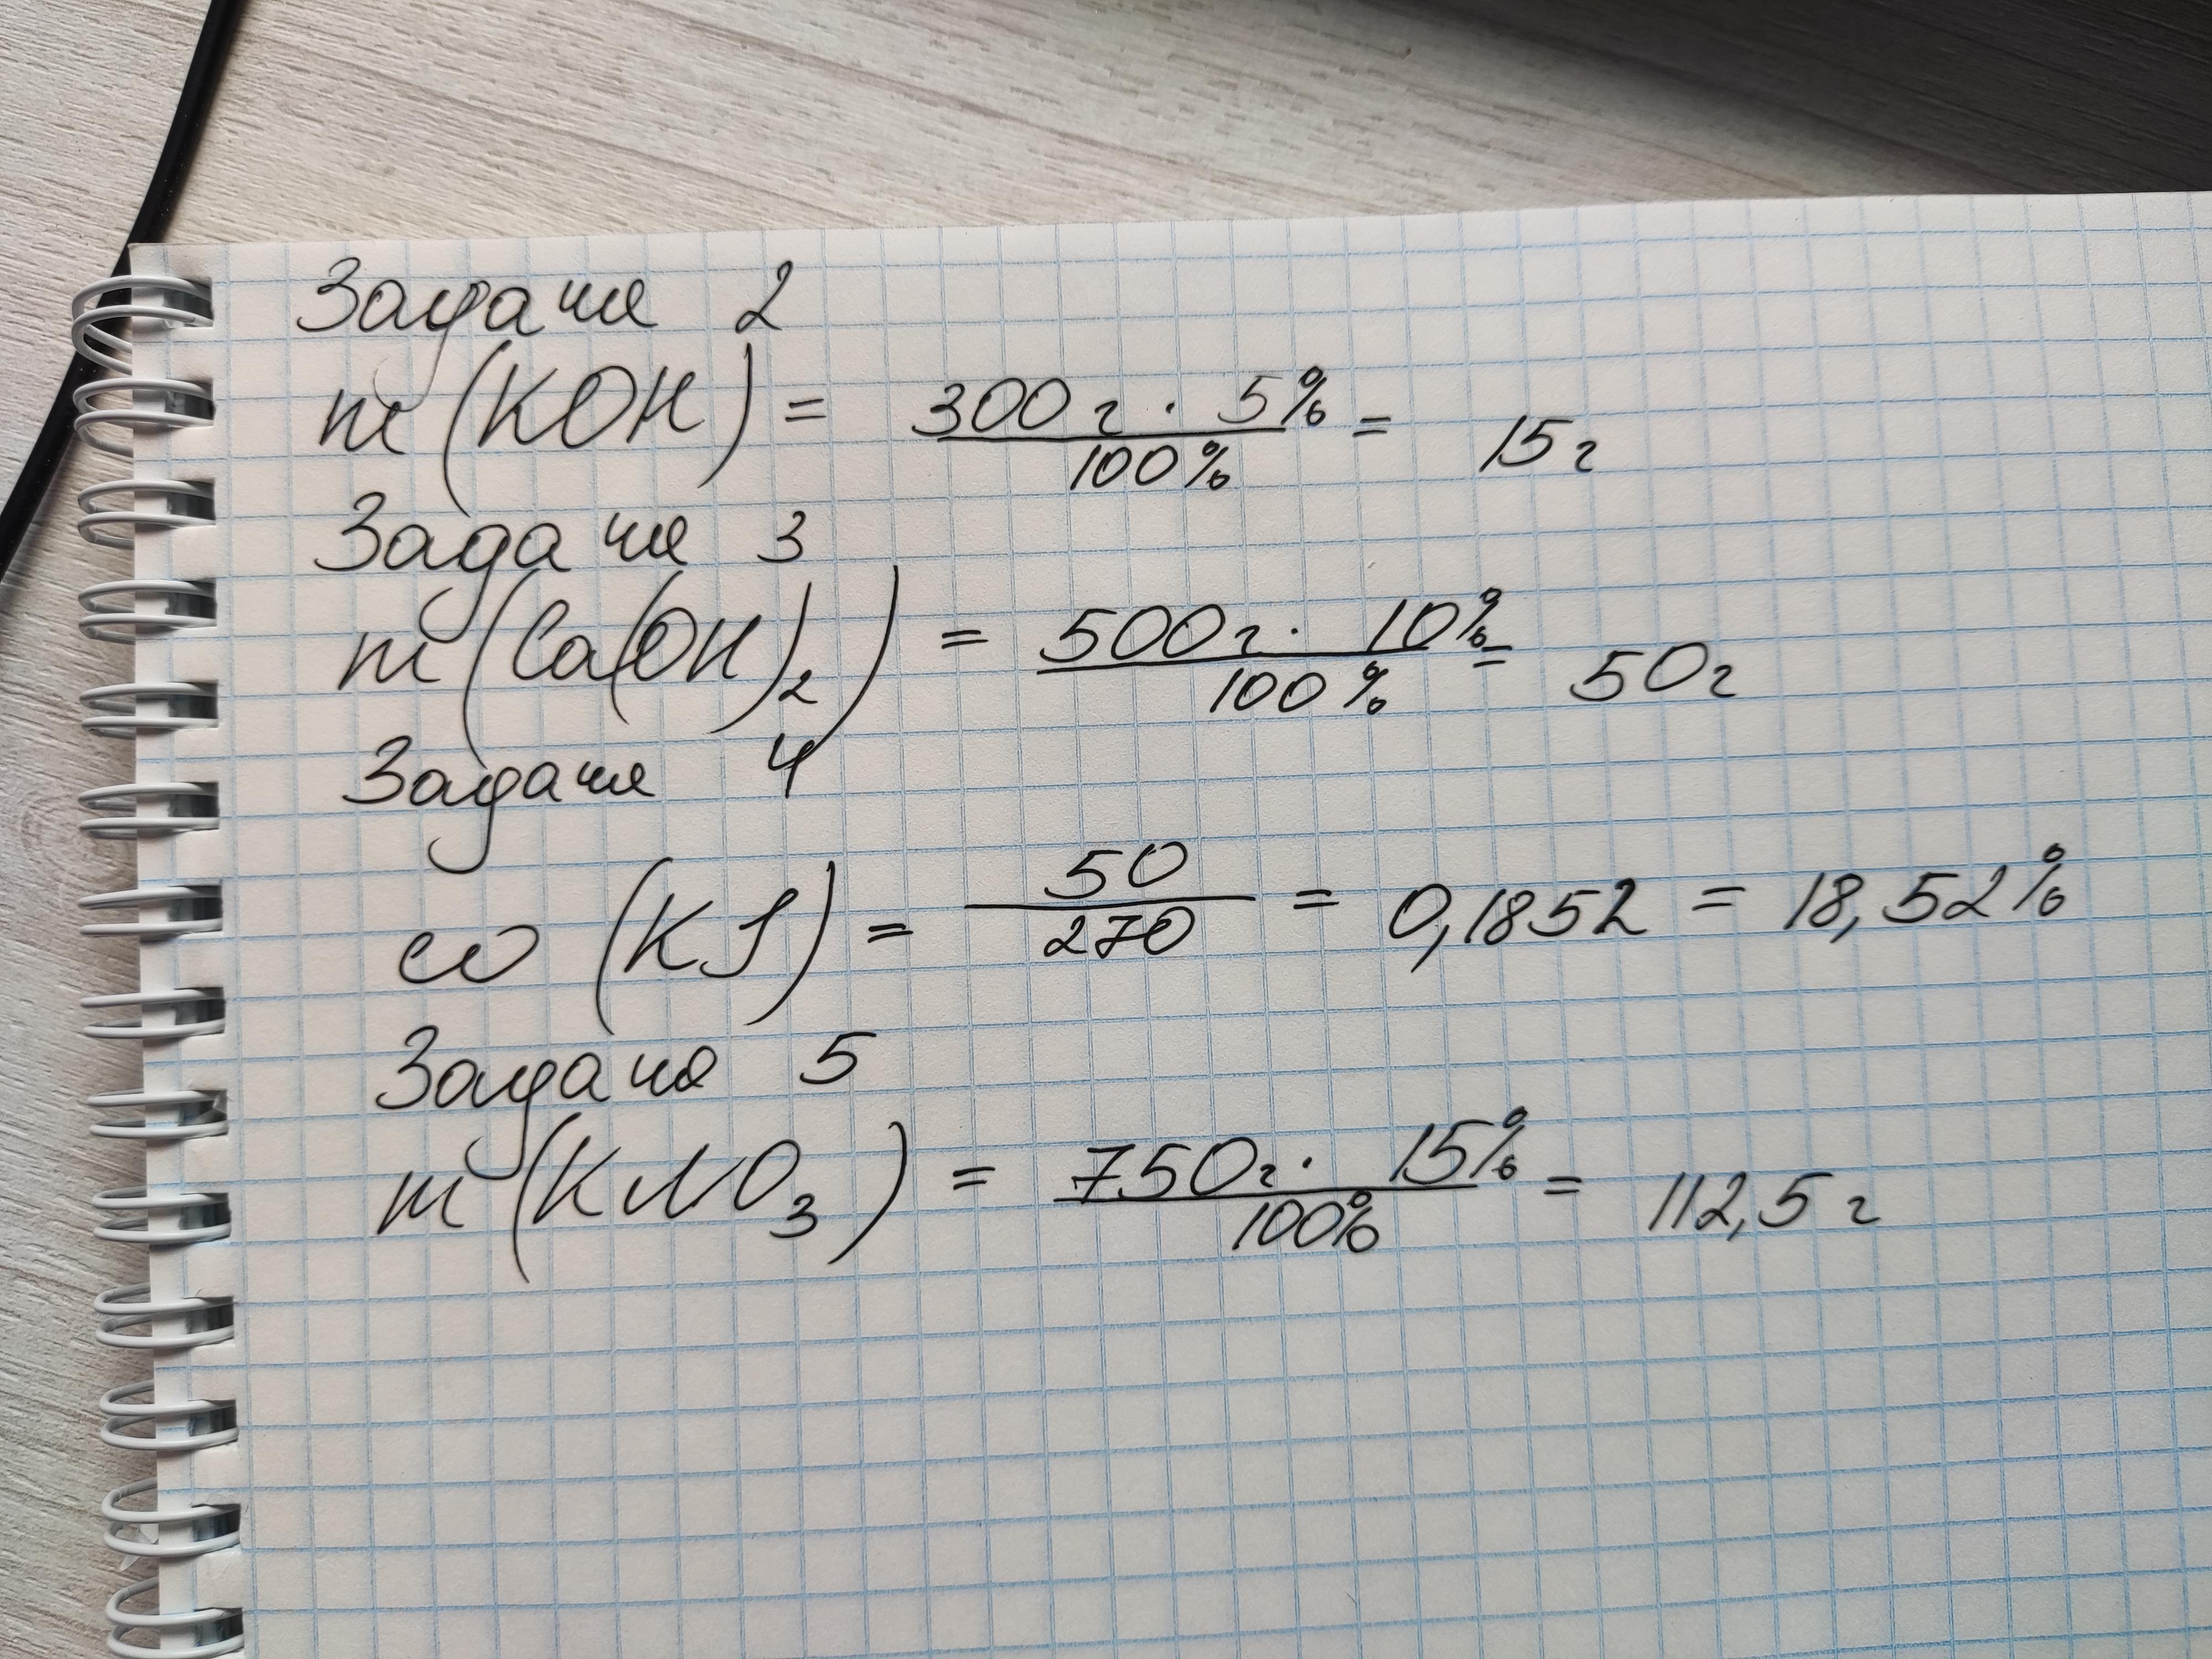 Задача 2
m (KOH) = 300 г · 5% / 100% = 15 г
Задача 3
m (Ca(OH)₂) = 500 г · 10% / 100% = 50 г
Задача 4
ω (KJ) = 50 / 270 = 0,1852 = 18,52%
Задача 5
m (KNO₃) = 750 г · 15% / 100% = 112,5 г